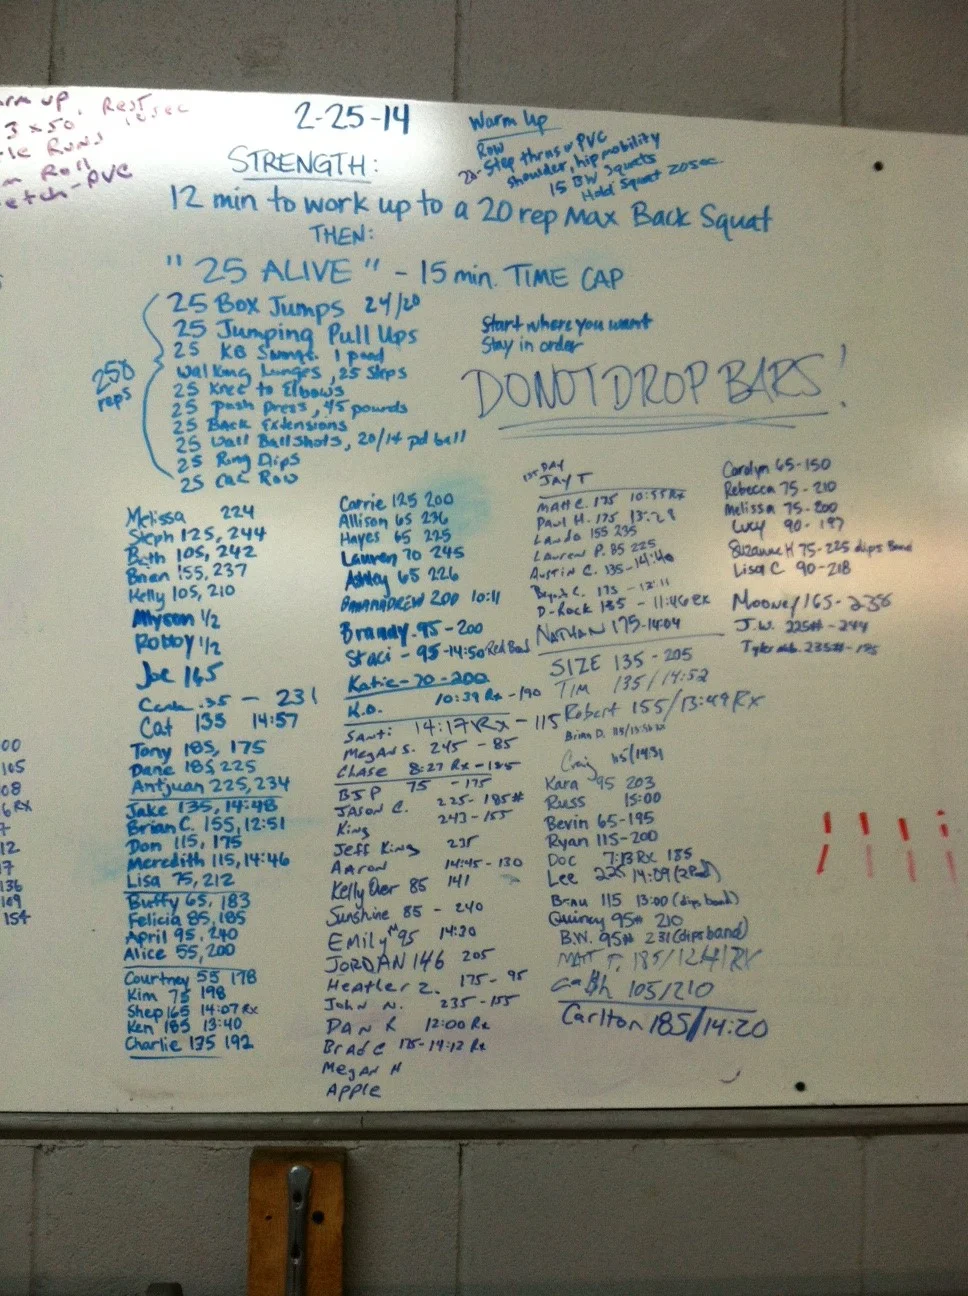 2-25-14
STRENGTH:
12 min to work up to a 20 rep Max Back Squat
THEN:
"25 ALIVE" - 15 min. TIME CAP
Warm Up
Row
20 - Step thrus w/ PVC
shoulder, hip mobility
15 BW Squats
Hold Squat 20sec.
Rest
3 x 50 10sec
Runs
Roll
PVC
250 reps
25 Box Jumps 24/20
25 Jumping Pull Ups
25 KB Swings. 1 pood
Walking Lunges, 25 Steps
25 Knee to Elbows
25 Push Press, 45 pounds
25 Back Extensions
25 Wall Ball Shots, 20/14 pd ball
25 Ring Dips
25 Cal Row
Start where you want
Stay in order
DO NOT DROP BARS!
Melissa 224
Steph 125, 244
Beth 105, 242
Brian 155, 237
Kelly 105, 210
Allyson 1/2
Robby 1/2
Joe 165
35 - 231
Cat 135 14:57
Tony 185, 175
Dane 185, 225
Antjuan 225, 234
Jake 135, 14:48
Brian C. 155, 12:51
Don 115, 175
Meredith 115, 14:46
Lisa 75, 212
Buffy 65, 183
Felicia 85, 185
April 95, 240
Alice 55, 200
Courtney 55 178
Kim 75 198
Shep 165 14:07 Rx
Ken 185 13:40
Charlie 135 192
Carrie 125 200
Allison 65 236
Hayes 65 225
Lauren 70 245
Ashley 65 226
200 10:11
Brandy - 95 - 200
Staci - 95 - 14:50 Red Band
Katie - 70 - 200
K.O. 10:39 Rx - 190
Santi 14:17 Rx - 115
Megan S. 245 - 85
Chase 8:27 Rx - 185
BJP 75 - 175
Jason C. 225 - 185#
King 243 - 155
Jeff King 235
Aaron 14:45 - 130
Kelly Over 85 141
Sunshine 85 - 240
Emily 95 14:30
JORDAN 146 205
Heather Z. 175 - 95
John N. 235 - 155
Dan R 12:00 Rx
Brad C 175 - 14:12 Rx
Megan H
Apple
DAY
JAY T
Matt C. 175 10:55 Rx
Paul H. 175 13:28
Lando 155 235
Lauren P. 85 225
Austin C. 135 - 14:40
D-Rock 185 - 11:46 Rx
NATHAN 175 - 14:04
SIZE 135 - 205
Tim 135/14:52
Robert 155/13:49 RX
Brian D.
Craig
Kara 95 203
Russ 15:00
Bevin 65 - 195
Ryan 115 - 200
Doc 7:13 Rx 185
Lee 225 14:09 (2Rd)
Beau 115 13:00 (dips band)
Quincy 95# 210
B.W. 95# 231 (dips band)
MATT T. 185/12:41 RX
105/210
Carlton 185/14:20
Carolyn 65 - 150
Rebecca 75 - 210
Melissa 75 - 200
Lucy 90 - 197
Suzanne H 75 - 225 dips Band
Lisa C 90 - 218
Mooney 165 - 238
J.W. 225# - 244
Tyler 235# - 185
00
165
08
6 RX
7
12
17
136
109
154